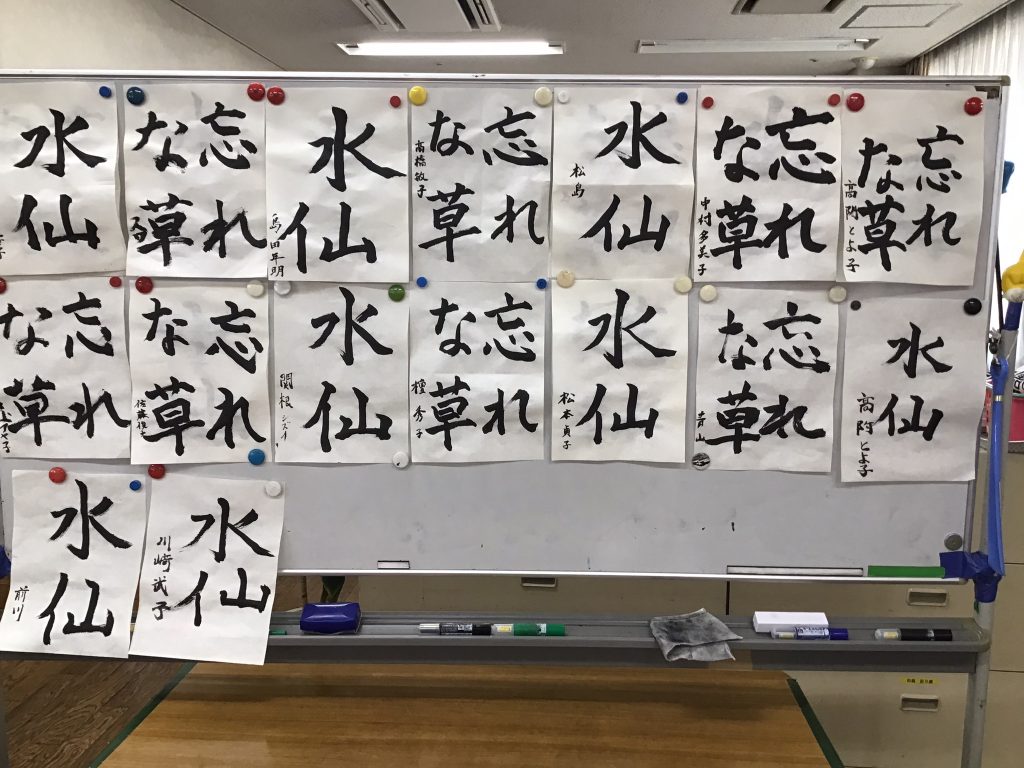 水仙
忘れ
な草
水仙
島田年明
忘れ
な草
高橋敏子
水仙
松島
忘れ
な草
中村多美子
忘れ
な草
高附とよ子
忘れ
な草
忘れ
な草
水仙
関根シズイ
忘れ
な草
檀秀子
水仙
松本貞子
忘れ
な草
青山
水仙
高附とよ子
水仙
前川
水仙
川崎武子